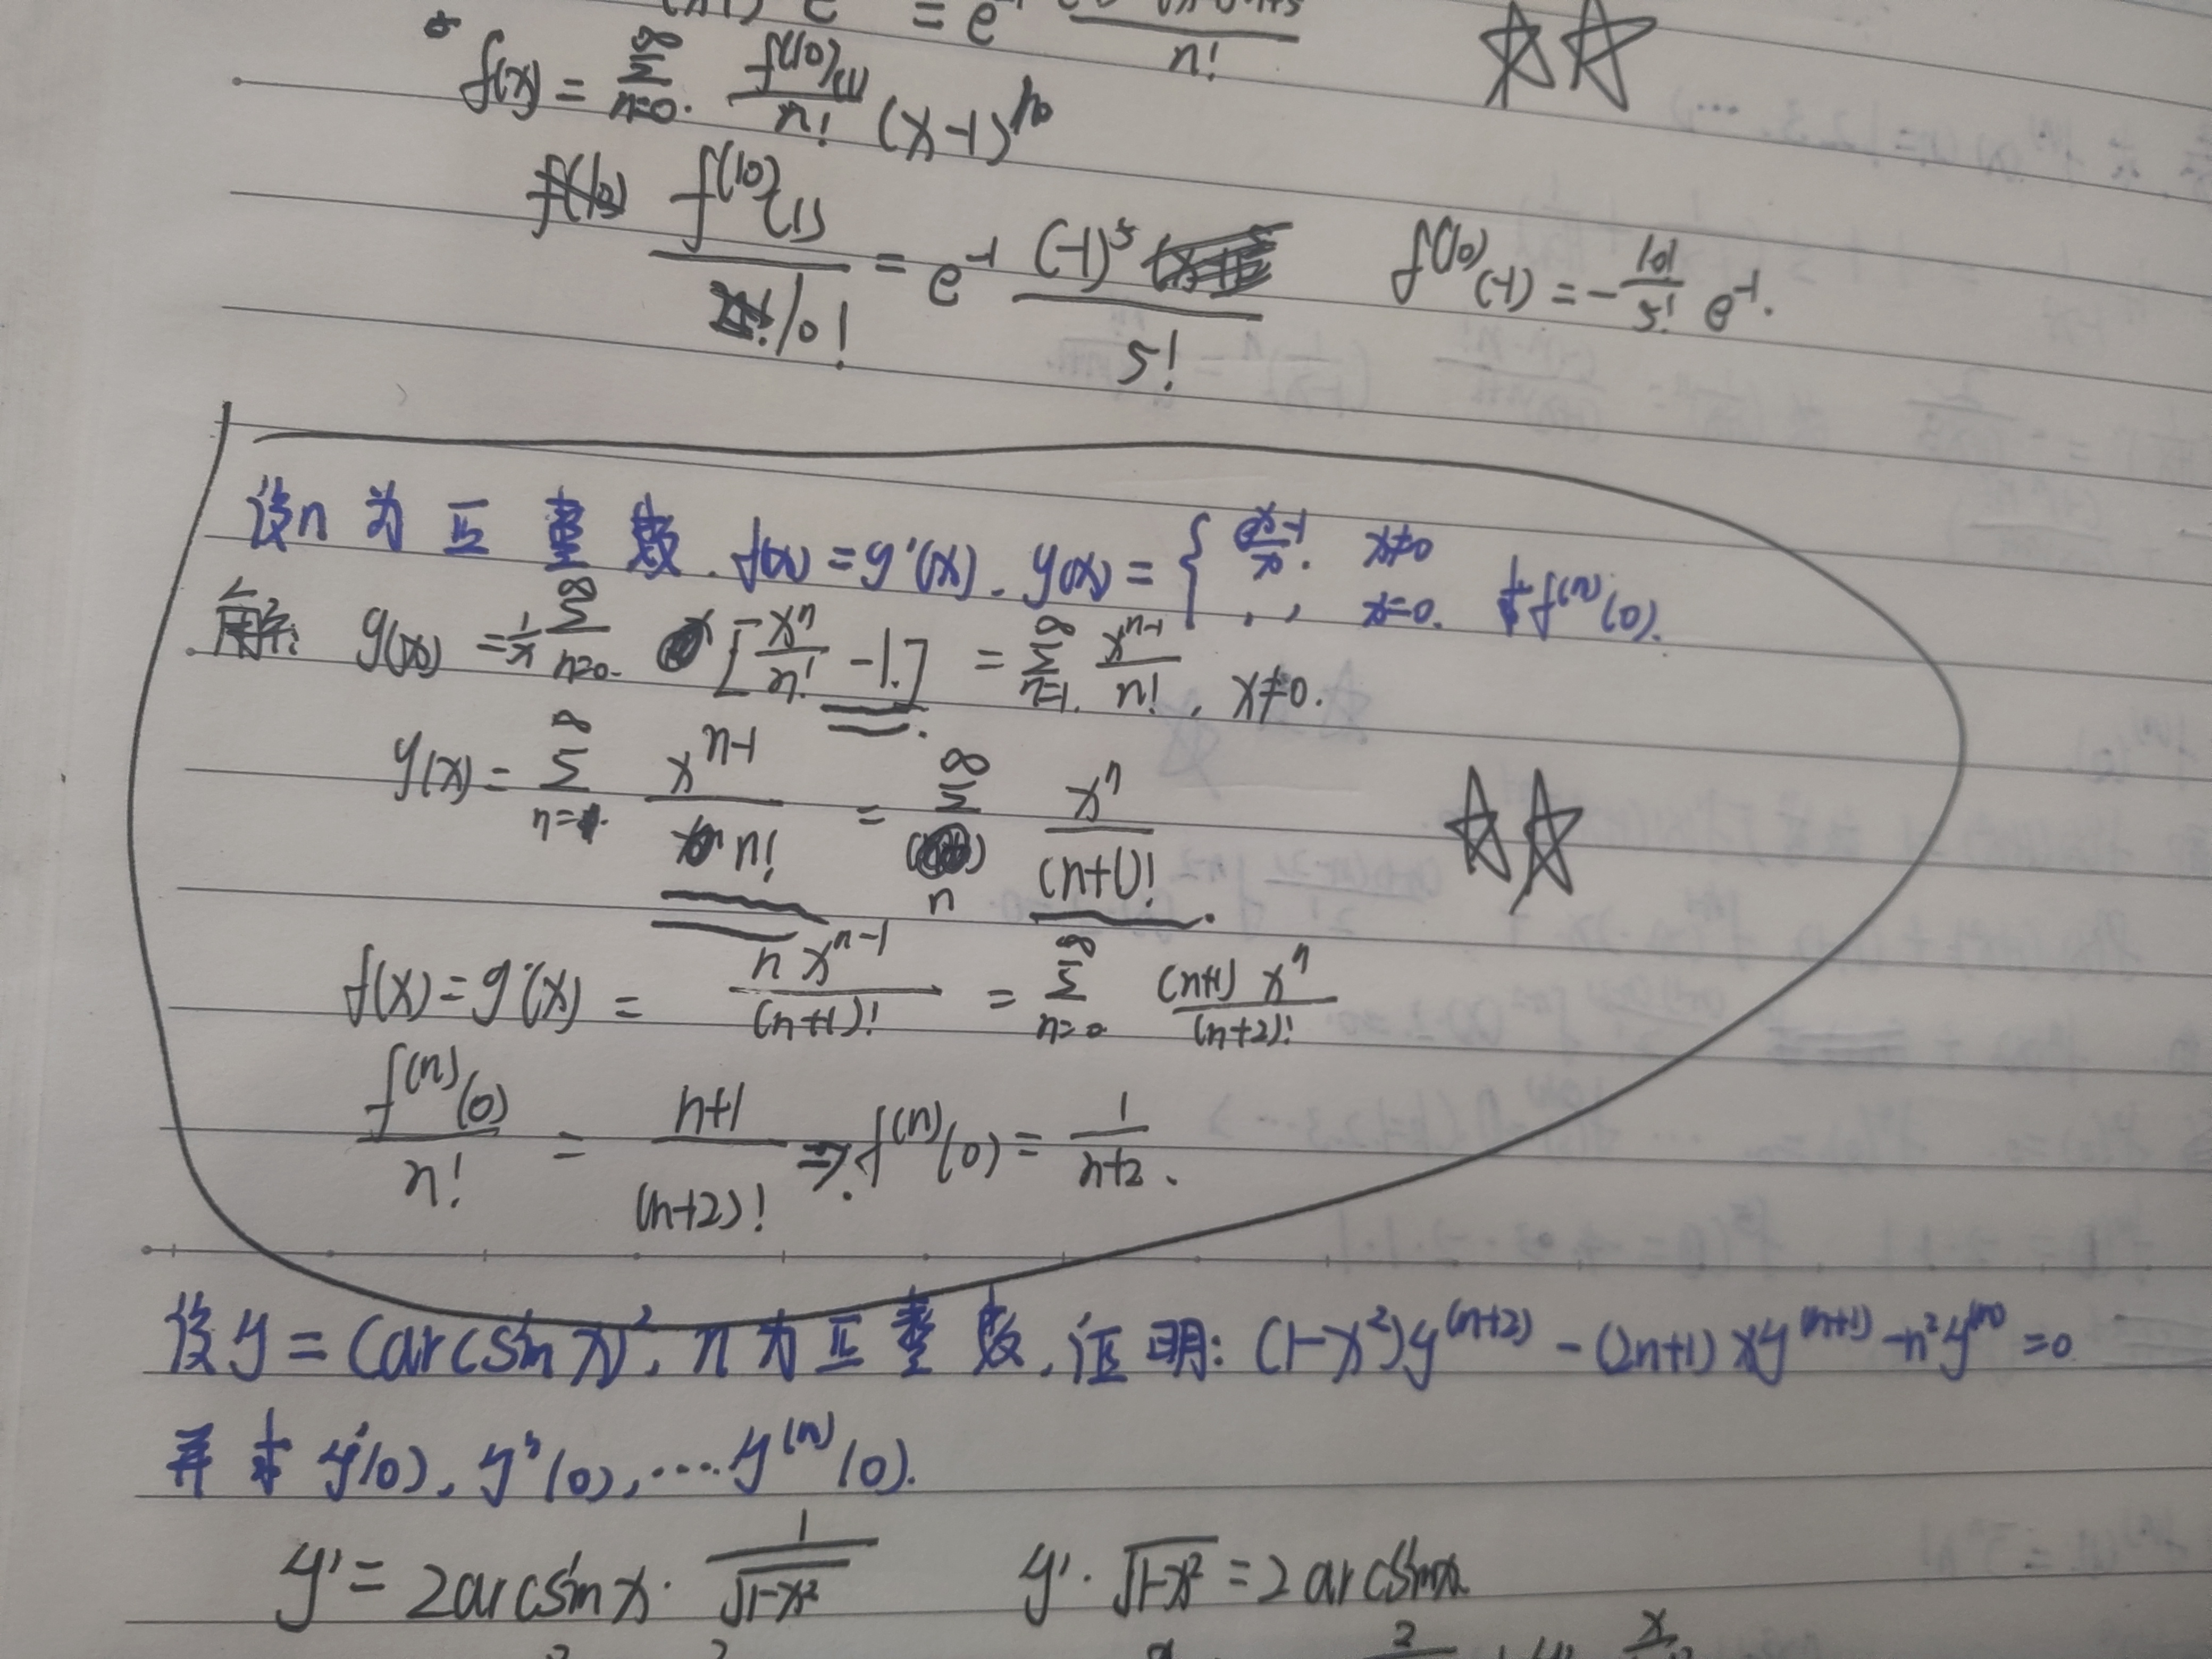 = e⁻¹ n!
f(x) = ∑_{n=0}^{∞} f^{(10)}(1)/n! (x-1)^{10}
f^{(10)}(1)/10! = e⁻¹ (-1)⁵/5! f^{(10)}(-1) = -10!/5! e⁻¹.
设n 为 正 整 数. f(x) = g'(x). g(x) = { (eˣ-1)/x. x≠0
1, x=0. 求f^{(n)}(0).
解: g(x) = 1/x ∑_{n=0}^{∞} [xⁿ/n! -1.] = ∑_{n=1}^{∞} x^{n-1}/n!, x≠0.
g(x) = ∑_{n=1}^{∞} x^{n-1}/n! = ∑_{n}^{∞} xⁿ/(n+1)!.
f(x) = g'(x) = n x^{n-1}/(n+1)! = ∑_{n=0}^{∞} (n+1) xⁿ/(n+2)!
f^{(n)}(0)/n! = n+1/(n+2)! ⇒. f^{(n)}(0) = 1/n+2.
设y = (arcsin x)², n 为 正 整 数, 证 明: (1-x²)y^{(n+2)} - (2n+1) x y^{(n+1)} - n² y^{(n)} = 0
并 求 y'(0), y''(0), ....y^{(n)}(0).
y' = 2arcsin x · 1/√(1-x²) y' · √(1-x²) = 2 arcsin x.